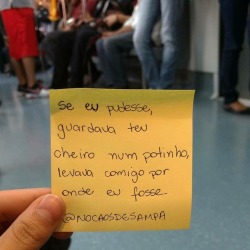 Se eu pudesse,
guardava teu
cheiro num potinho,
levava comigo por
onde eu fosse.
@NOCAOSDESAMPA